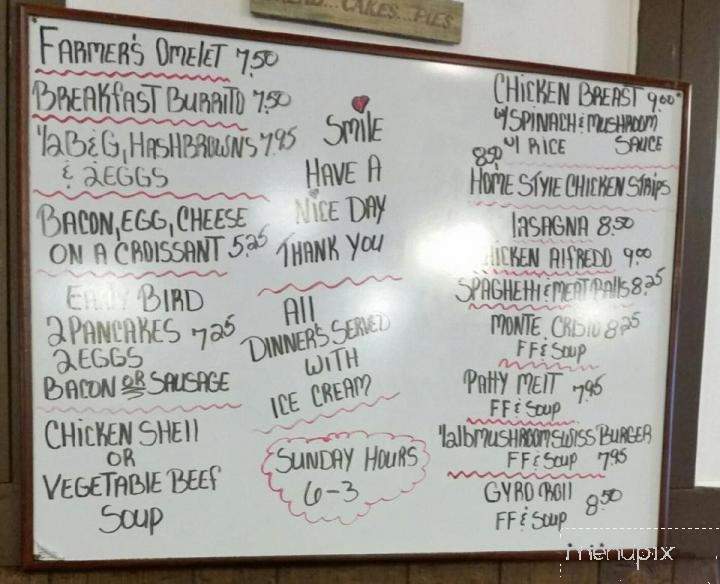 CAKES...PIES
FARMER'S OMELET 7.50
BREAKFAST BURRITO 7.50
1/2 B&G, HASHBROWNS 7.95
& 2 EGGS
BACON, EGG, CHEESE
ON A CROISSANT 5.25
EARLY BIRD
2 PANCAKES 7.25
2 EGGS
BACON OR SAUSAGE
CHICKEN SHELL
OR
VEGETABLE BEEF
SOUP
SMILE
HAVE A
NICE DAY
THANK YOU
All
DINNER'S SERVED
WITH
ICE CREAM
SUNDAY HOURS
6-3
CHICKEN BREAST 9.00
W/ SPINACH & MUSHROOM
W/ RICE SAUCE
8.50
HOME STYLE CHICKEN STRIPS
LASAGNA 8.50
CHICKEN ALFREDO 9.00
SPAGHETTI & MEAT BALLS 8.25
MONTE CRISTO 8.25
FF & SOUP
PATTY MELT 7.95
FF & SOUP
1/2 lb MUSHROOM SWISS BURGER
FF & SOUP 7.95
GYRO ROLL 8.50
FF & SOUP
menupix